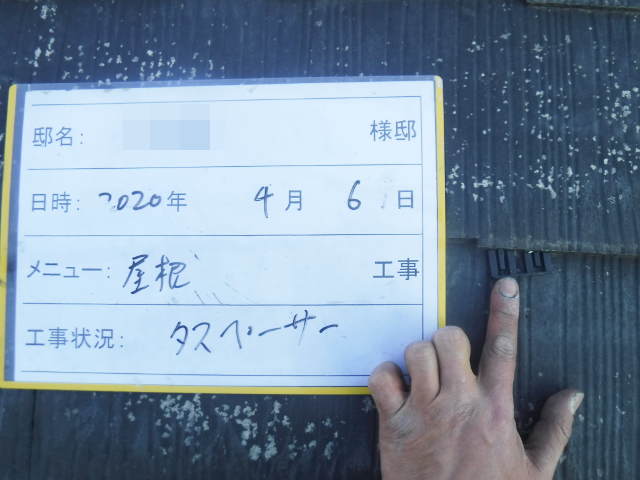 邸名: 様邸
日時: 2020年 4月 6日
メニュー: 屋根 工事
工事状況: タスペーサー